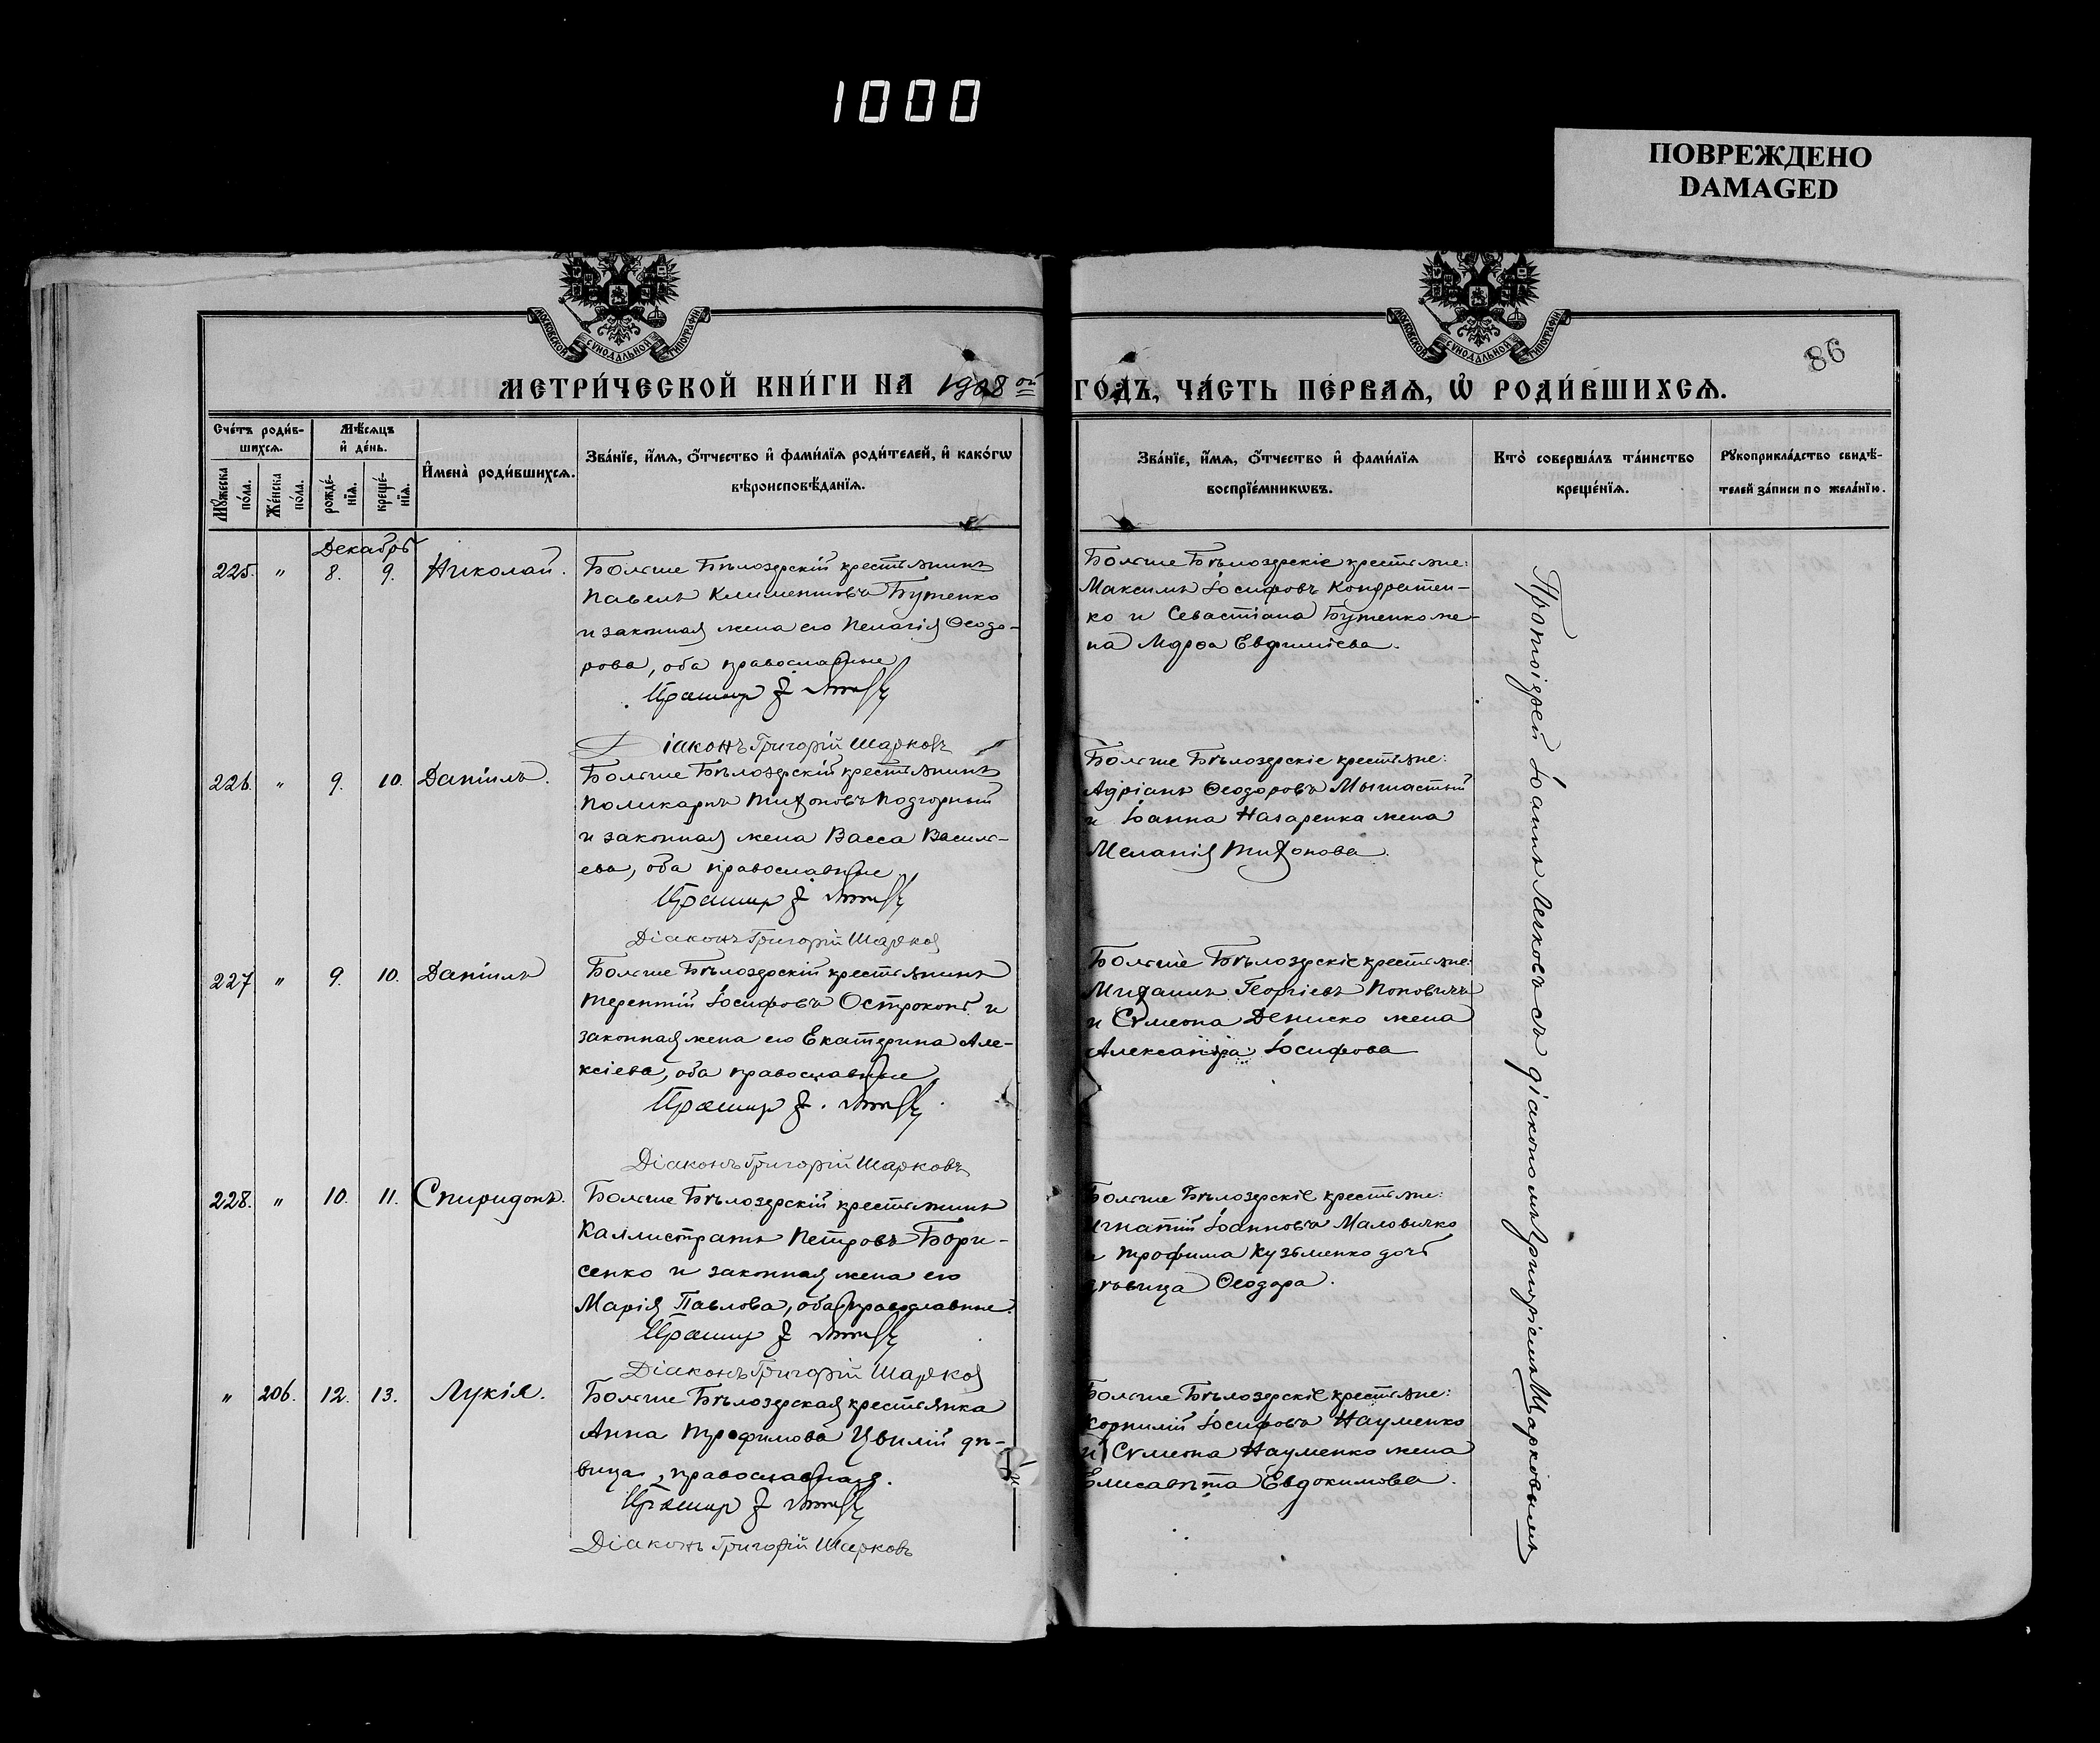 1000
ПОВРЕЖДЕНО
DAMAGED
МОСКОВСКОЙ СѴНОДАЛЬНОЙ ТИПОГРАФІИ
МОСКОВСКОЙ СѴНОДАЛЬНОЙ ТИПОГРАФІИ
86
МЕТРИ́ЧЕСКОЙ КНИ́ГИ НА 1908 ой ГО́ДЪ, ЧА́СТЬ ПЕ́РВАѦ, Ѡ҆ РОДИ́ВШИХСѦ.
Сче́тъ роди́в-
шихсѧ.
Мѣ́сѧцъ
и҆ де́нь.
Мꙋ́жеска по́ла.
Же́нска по́ла.
рожде́-
нїѧ.
креще́-
нїѧ.
И҆мена̀ роди́вшихсѧ.
Зва́нїе, и҆́мѧ, ѻ҆́тчество и҆ фами́лїѧ роди́телей, и҆ како́гѡ
вѣроисповѣ́данїѧ.
Зва́нїе, и҆́мѧ, ѻ҆́тчество и҆ фами́лїѧ
воспрїе́мникѡвъ.
Кто̀ соверша́лъ та́инство
креще́нїѧ.
Рꙋкоприкла́дство свидѣ́-
телей за́писи по жела́нїю.
Декабрь
225. " 8. 9. Николай.
Больше Бѣлозерскій крестьянинъ
Павелъ Климентовъ Бутенко
и законная жена его Пелагія Ѳеодо-
рова, оба православные
Діаконъ Григорій Шарковъ
Больше Бѣлозерскіе крестьяне:
Максимъ Іосифовъ Кондратен-
ко и Севастіана Бутенко же-
на Марѳа Евфиміева.
226. " 9. 10. Даніилъ.
Больше Бѣлозерскій крестьянинъ
Поликарпъ Тихоновъ Подгорный
и законная жена Васса Василь-
ева, оба православные
Діаконъ Григорій Шарков
Больше Бѣлозерскіе крестьяне:
Адріанъ Ѳеодоровъ Мышастый
и Іоанна Назаренка жена
Меланія Тихонова.
227 " 9. 10. Даніилъ
Больше Бѣлозерскій крестьянинъ
Терентій Іосифовъ Остроконь и
законная жена его Екатерина Але-
ксіева, оба православные
Діаконъ Григорій Шарковъ
Больше Бѣлозерскіе крестьяне:
Михаилъ Георгіевъ Поповичъ
и Сѵмеона Дениско жена
Александра Іосифова
228. " 10. 11. Спиридонъ.
Больше Бѣлозерскій крестьянинъ
Каллистратъ Петровъ Бори-
сенко и законная жена его
Марія Павлова, оба православные.
Діаконъ Григорій Шарков
Больше Бѣлозерскіе крестьяне:
Игнатій Іоанновъ Маловичко
и Трофима Кузьменко дочь
дѣвица Ѳеодора.
" 206. 12. 13. Лукія.
Больше Бѣлозерская крестьянка
Анна Трофимова Цвилій дѣ-
вица, православная.
Діаконъ Григорій Шарковъ
Больше Бѣлозерскіе крестьяне:
Корнилій Іосифовъ Науменко
и Сѵмеона Науменко жена
Елисавѣта Евдокимова.
Протоіерей Іоаннъ Легковъ съ діакономъ Григоріемъ Шарковымъ